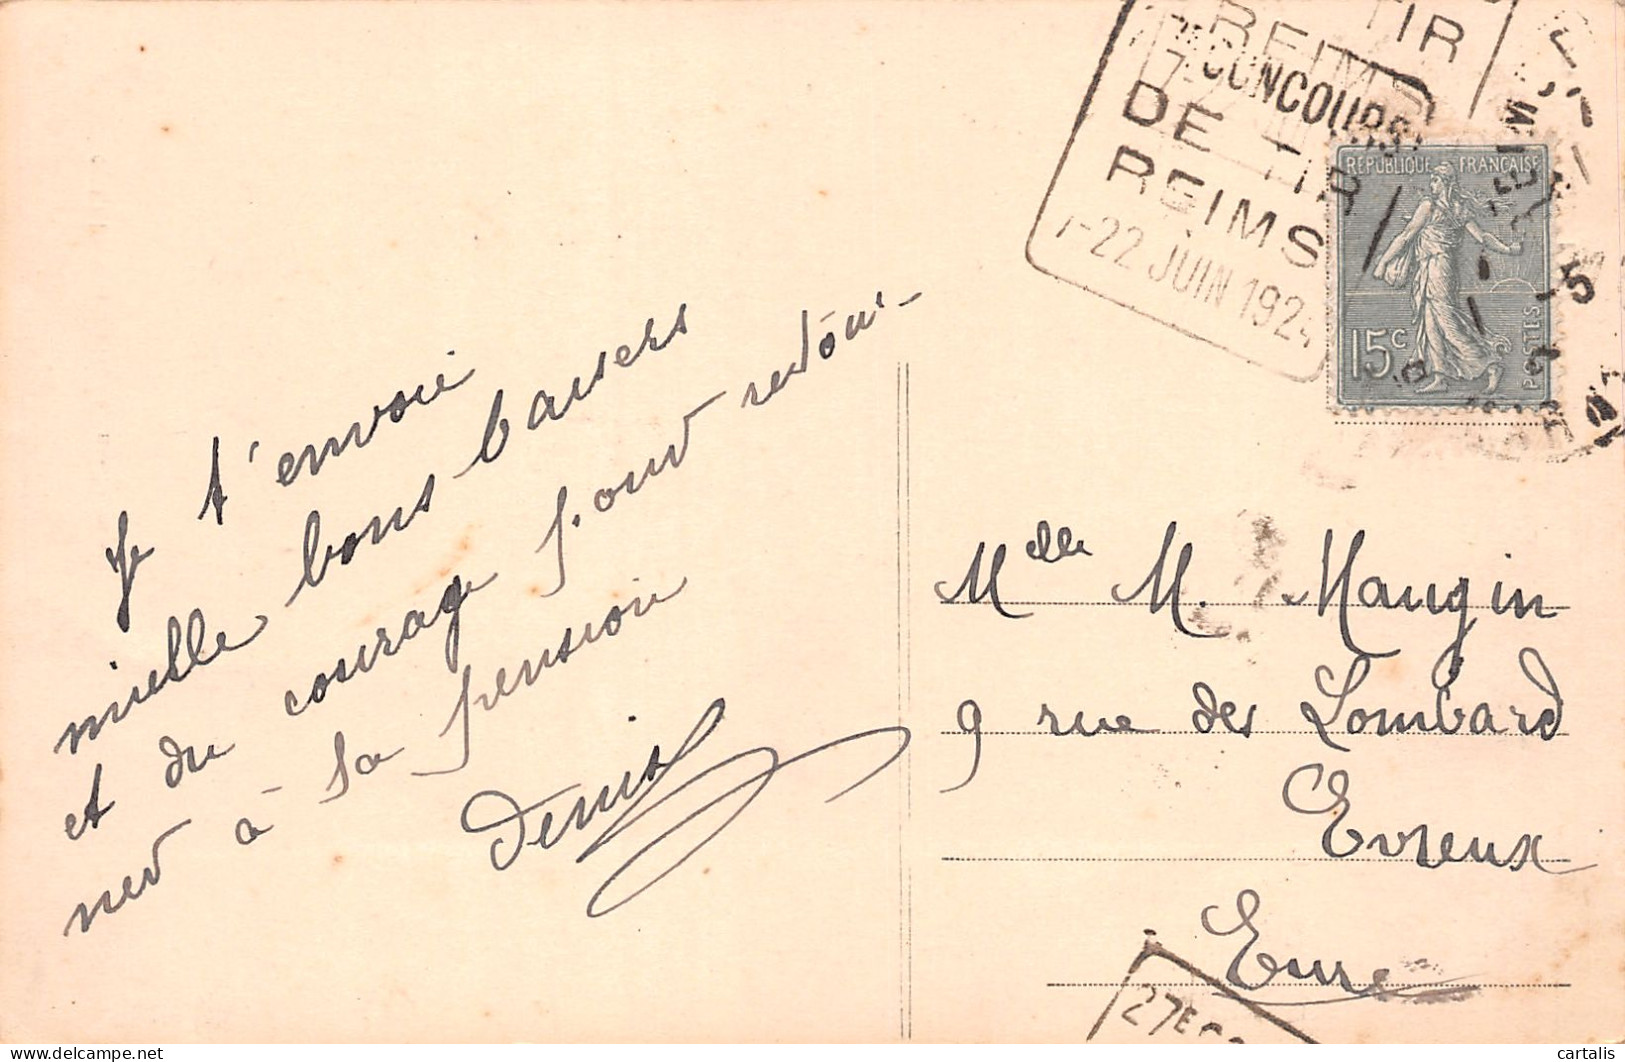 Je t'envoie
mille bons baisers
et du courage pour retour-
ner à la pension
Denise
TIR
REIMS
CONCOURS
DE TIR
REIMS
7-22 JUIN 1924
REPUBLIQUE FRANÇAISE
15c
POSTES
-5
Melle M. Maugin
9 rue des Lombard
Evreux
Eure
27E CO
cartalis
delcampe.net